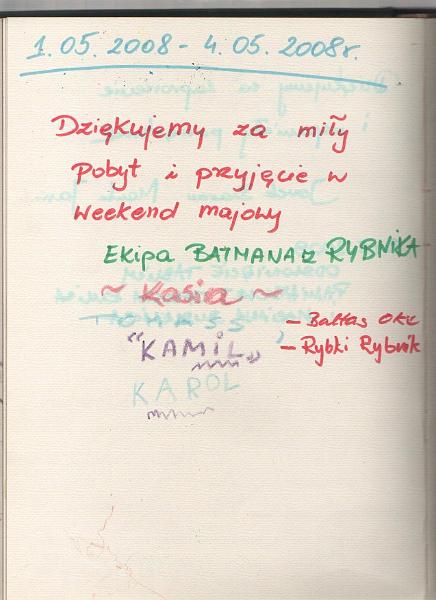 1.05.2008 - 4.05.2008r.
Dziękujemy za miły
Pobyt i przyjęcie w
weekend majowy
Ekipa BATMANA z RYBNIKA
~ Kasia ~
- Baltas
"KAMIL"
- Rybki Rybnik
KAROL